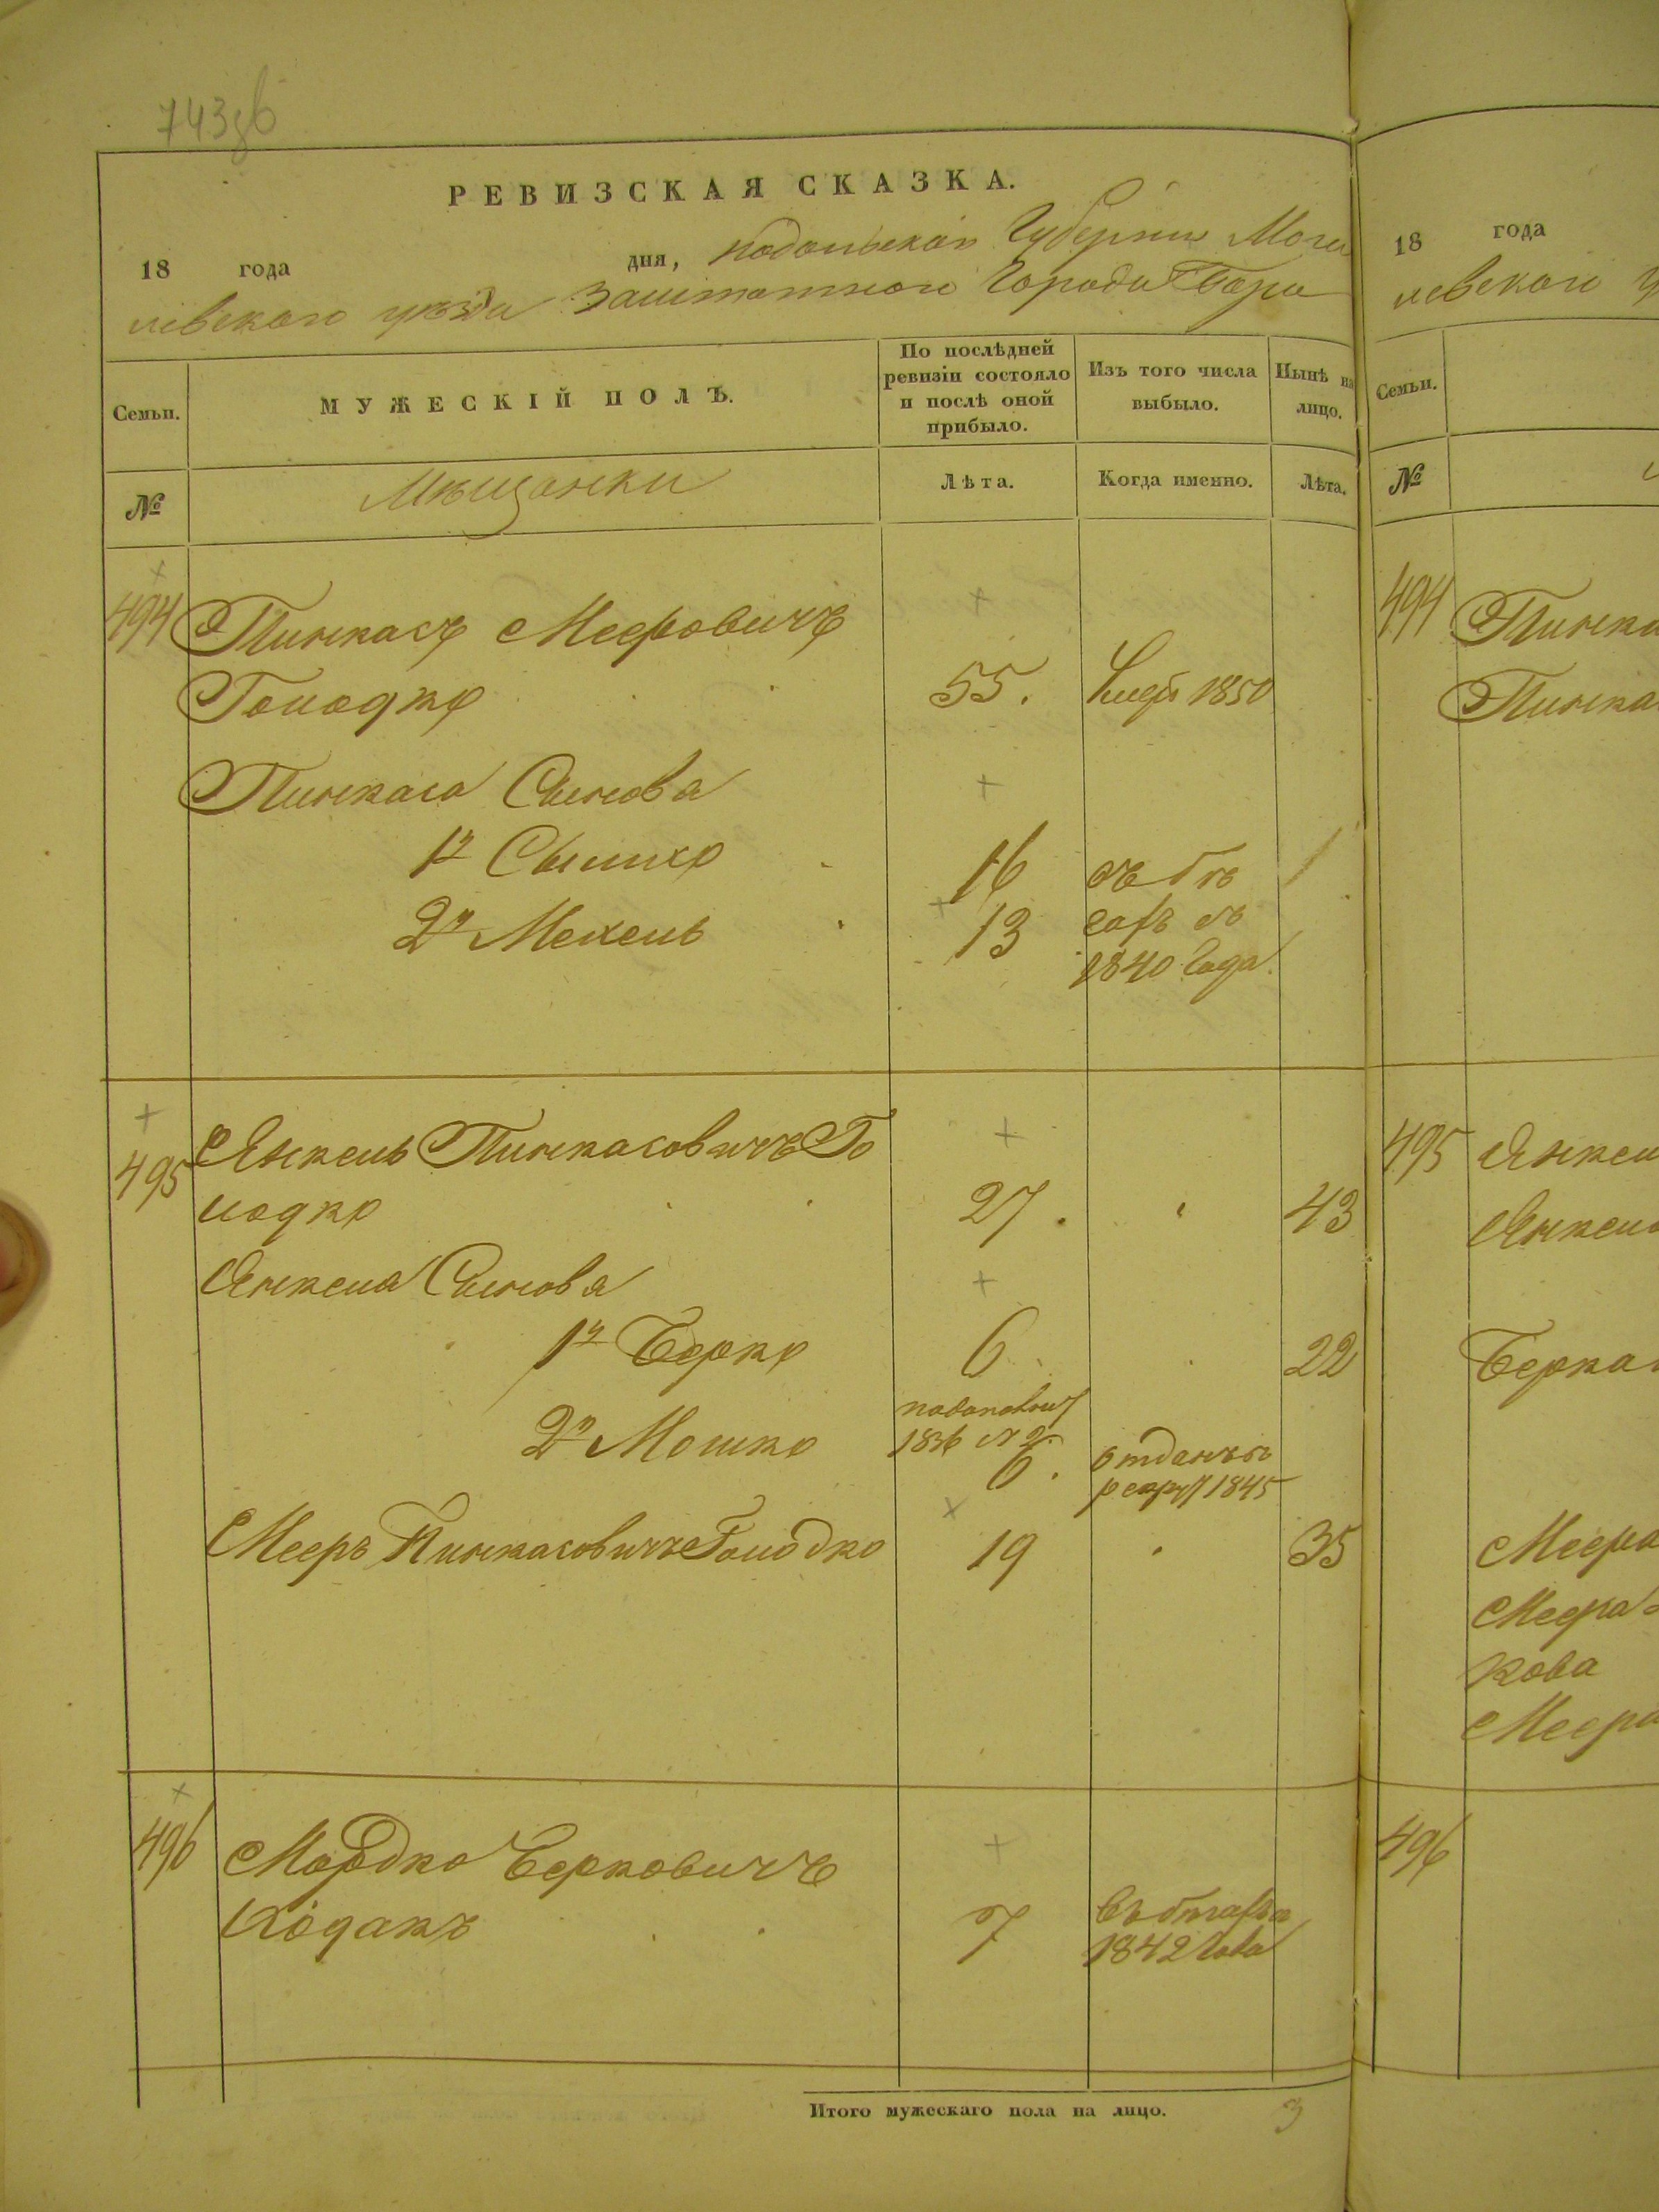 743зв
РЕВИЗСКАЯ СКАЗКА.
18 года дня, Подольской Губернии Моги
левского уѣзда Заштатного Города Бара
Семьи.
МУЖЕСКІЙ ПОЛЪ.
По послѣдней ревизіи состояло и послѣ оной прибыло.
Изъ того числа выбыло.
Нынѣ на лицо.
№
Мѣщанки
Лѣта.
Когда именно.
Лѣта.
494 Пинкасъ Мееровичъ
Голодко 55. 1850
Пинкаса Сынова
1й 16 въ бѣ
2й Мехель 13 гахъ съ
1840 года.
495 Янкель Пинкасовичъ Го
лодко 27. 43
Янкеля Сынова
1й Берко 6 22
2й Мошко 1836 № 2. 6. отданъ въ
рекруты 1845
Мееръ Пинкасовичъ Голодко 19 35
496 Мордко Берковичъ
Кодакъ 7 въ бѣгахъ съ
1842 года
Итого мужескаго пола на лицо. 3
18 года
левского у
Семьи.
№
494 Пинка
Пинка
495 Янкел
Янкел
Берка
Меера
Меера
кова
Меера
496